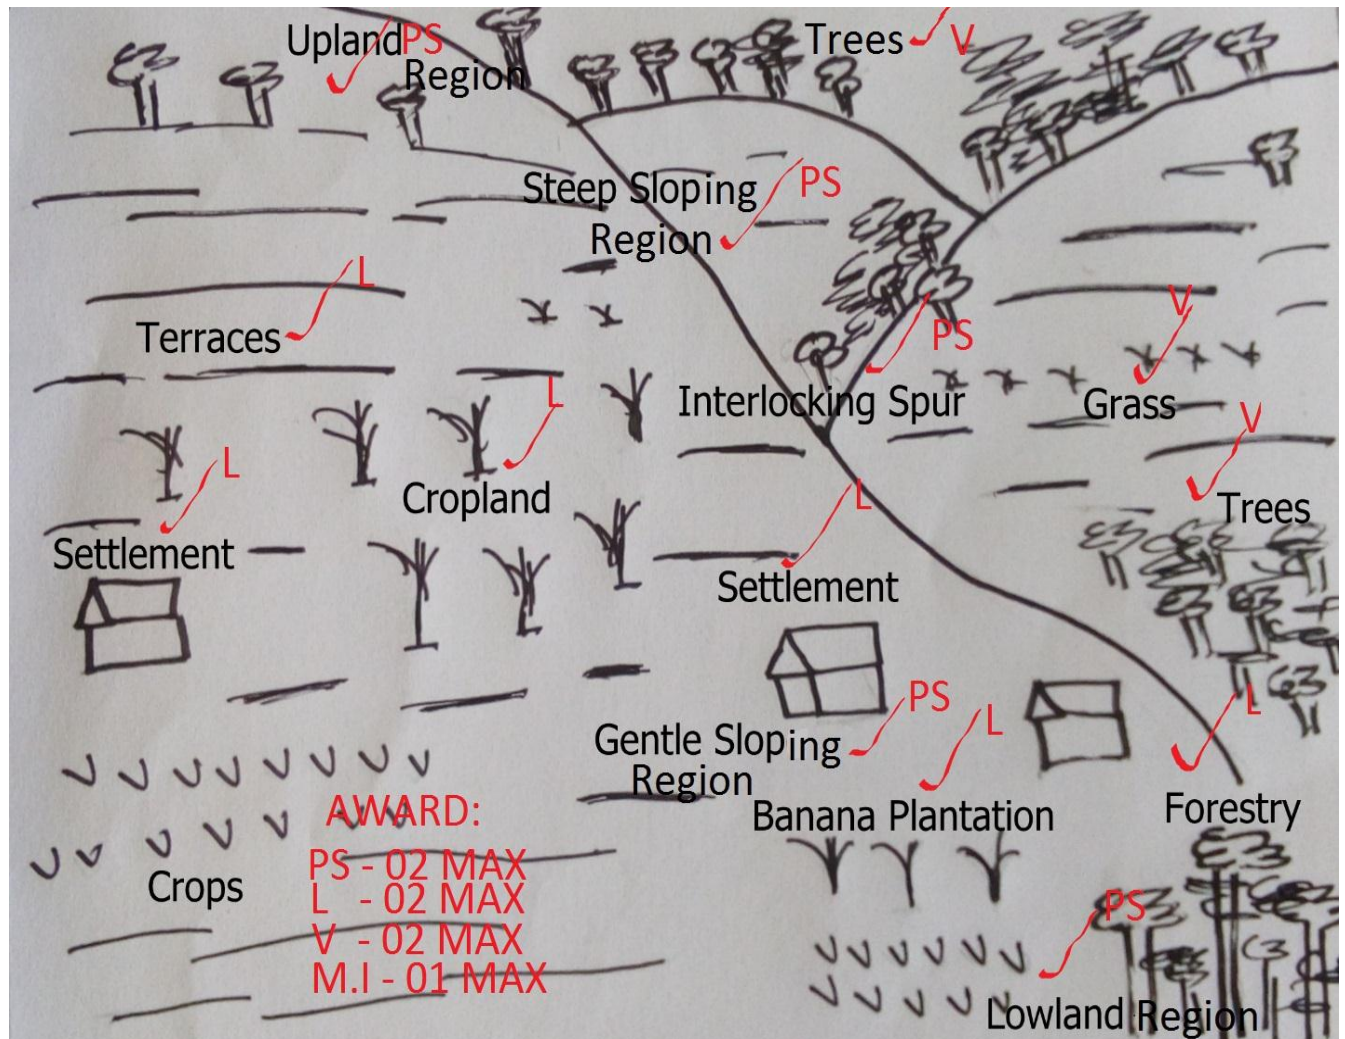 Upland PS
Region
Trees V
Steep Sloping PS
Region
Terraces L
PS
V
Interlocking Spur
Grass
L
Cropland
L
Settlement
V
Trees
L
Settlement
Gentle Sloping PS
Region
L
Banana Plantation
L
Forestry
AWARD:
PS - 02 MAX
L - 02 MAX
V - 02 MAX
M.I - 01 MAX
Crops
PS
Lowland Region